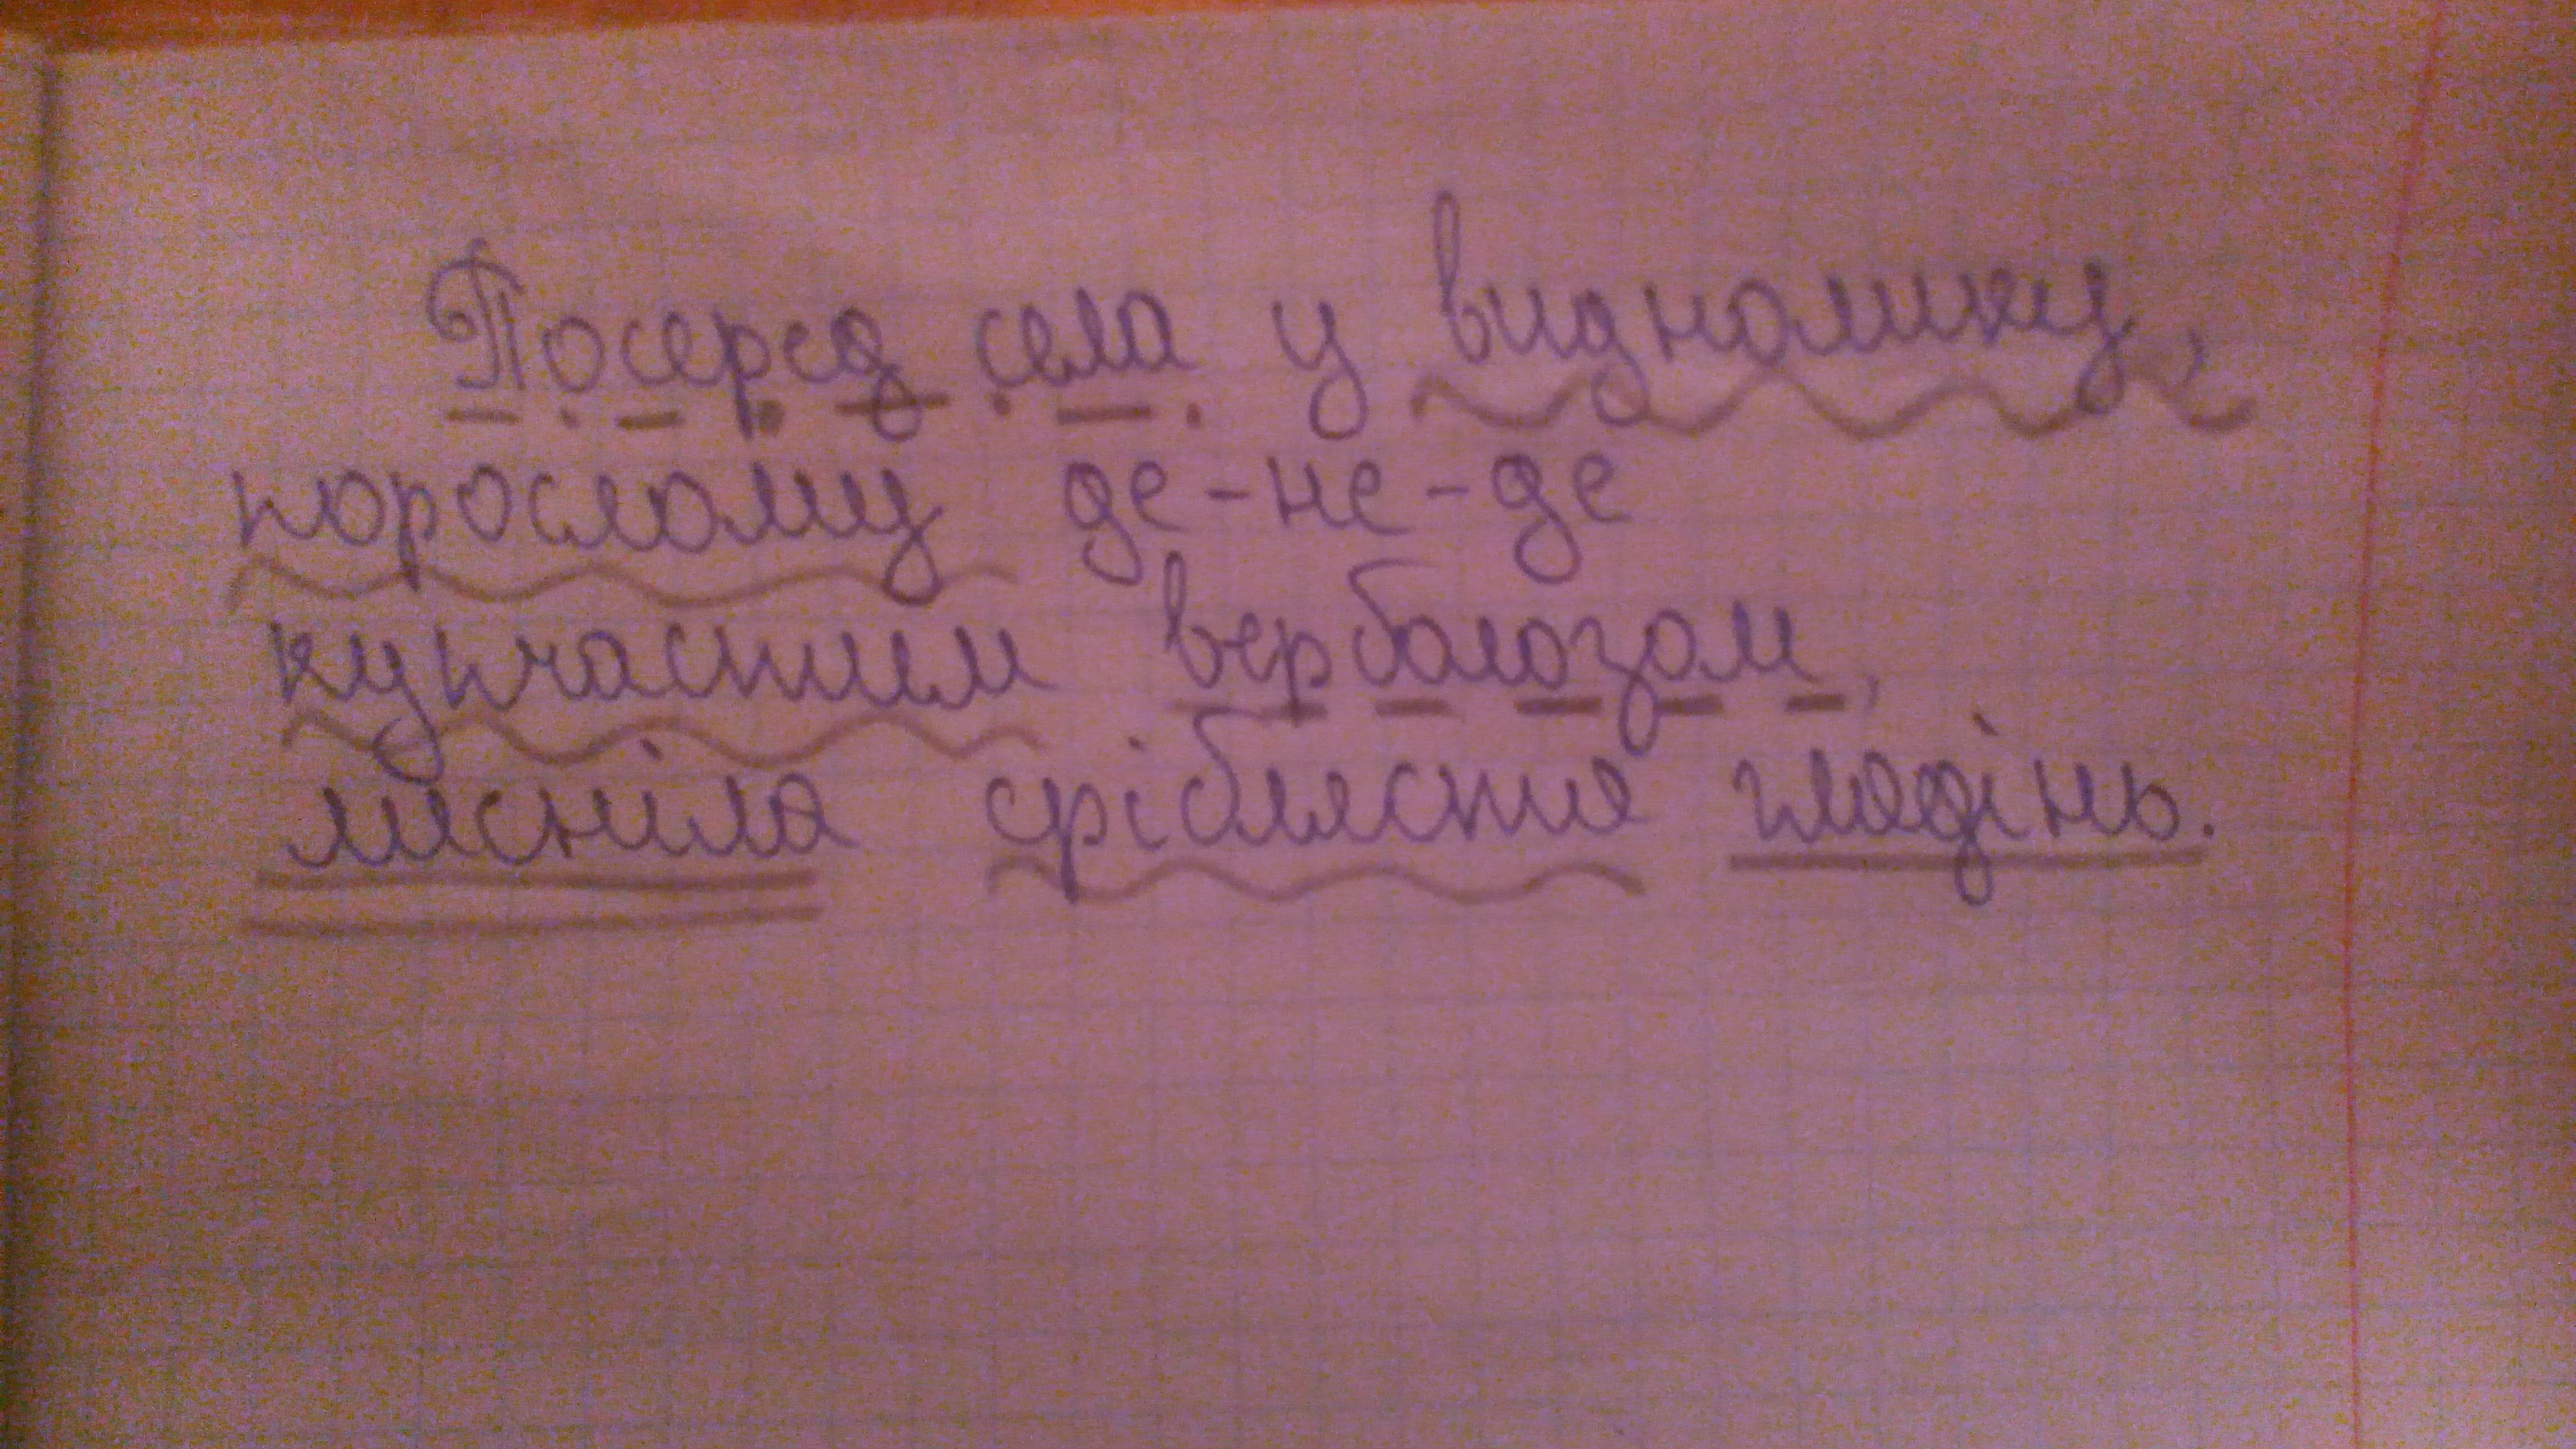 Посеред села у видиолинку,
порослому де-не-де
купчастим верболозом,
лисніла срібляста гладінь.